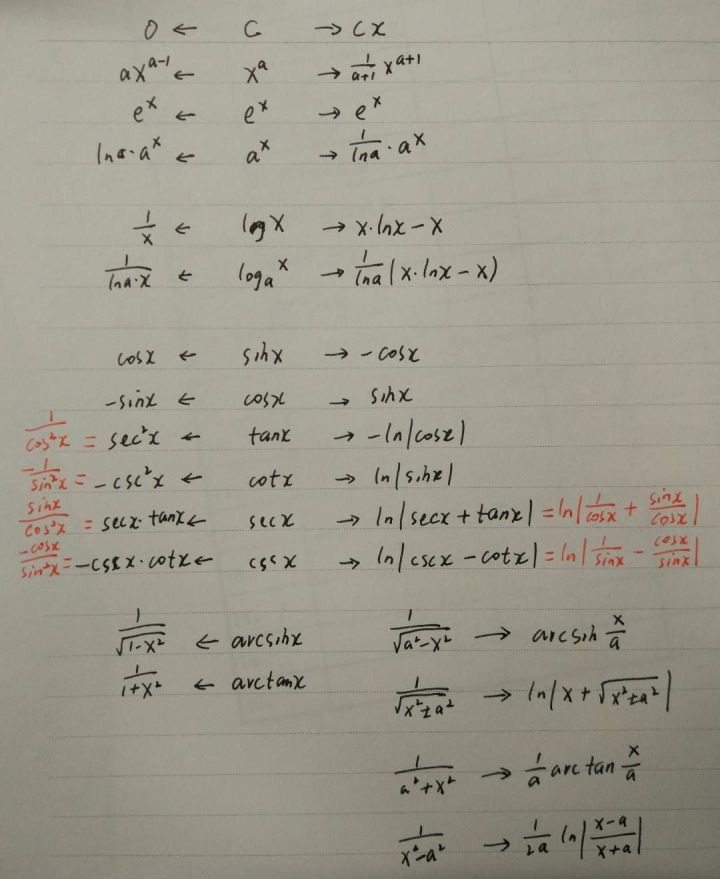 0 ← C → cx
ax^(a-1) ← x^a → 1/(a+1) x^(a+1)
e^x ← e^x → e^x
lna·a^x ← a^x → 1/lna · a^x
1/x ← log x → x·lnx − x
1/(lna·x) ← log_a x → 1/lna (x·lnx − x)
cosx ← sinx → -cosx
-sinx ← cosx → sinx
1/cos²x = sec²x ← tanx → -ln|cosx|
-1/sin²x = -csc²x ← cotx → ln|sinx|
sinx/cos²x = secx·tanx ← secx → ln|secx + tanx| = ln|1/cosx + sinx/cosx|
-cosx/sin²x = -cscx·cotx ← cscx → ln|cscx − cotx| = ln|1/sinx − cosx/sinx|
1/√(1-x²) ← arcsinx 1/√(a²-x²) → arcsin x/a
1/(1+x²) ← arctanx 1/√(x²±a²) → ln|x + √(x²±a²)|
1/(a²+x²) → 1/a arctan x/a
1/(x²-a²) → 1/2a ln|(x-a)/(x+a)|